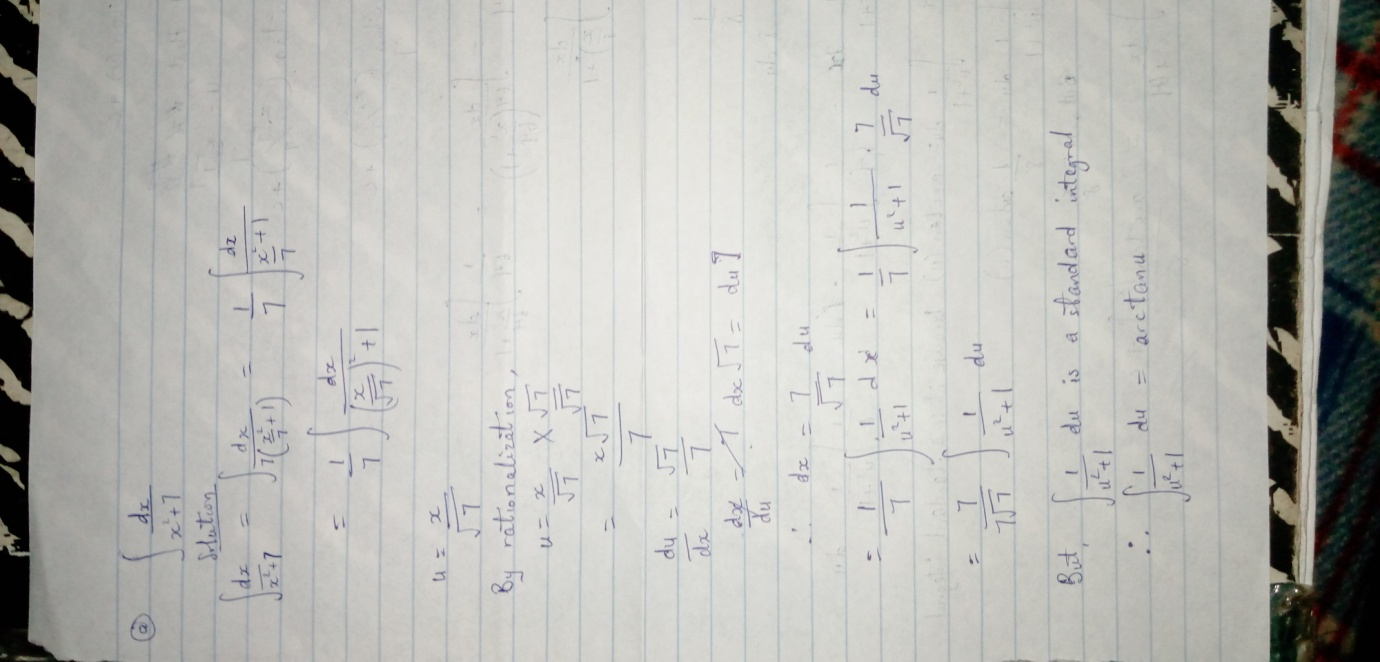 (a) ∫ dx/(x²+7)
Solution
∫ dx/(x²+7) = ∫ dx/(7(x²/7+1)) = 1/7 ∫ dx/(x²/7+1)
= 1/7 ∫ dx/((x/√7)²+1)
u = x/√7
By rationalization,
u = x/√7 × √7/√7
= x√7/7
du/dx = √7/7
dx/du = dx√7 = du7
∴ dx = 7/√7 du
= 1/7 ∫ 1/(u²+1) dx = 1/7 ∫ 1/(u²+1) · 7/√7 du
= 7/(7√7) ∫ 1/(u²+1) du
But, ∫ 1/(u²+1) du is a standard integral
∴ ∫ 1/(u²+1) du = arctan u